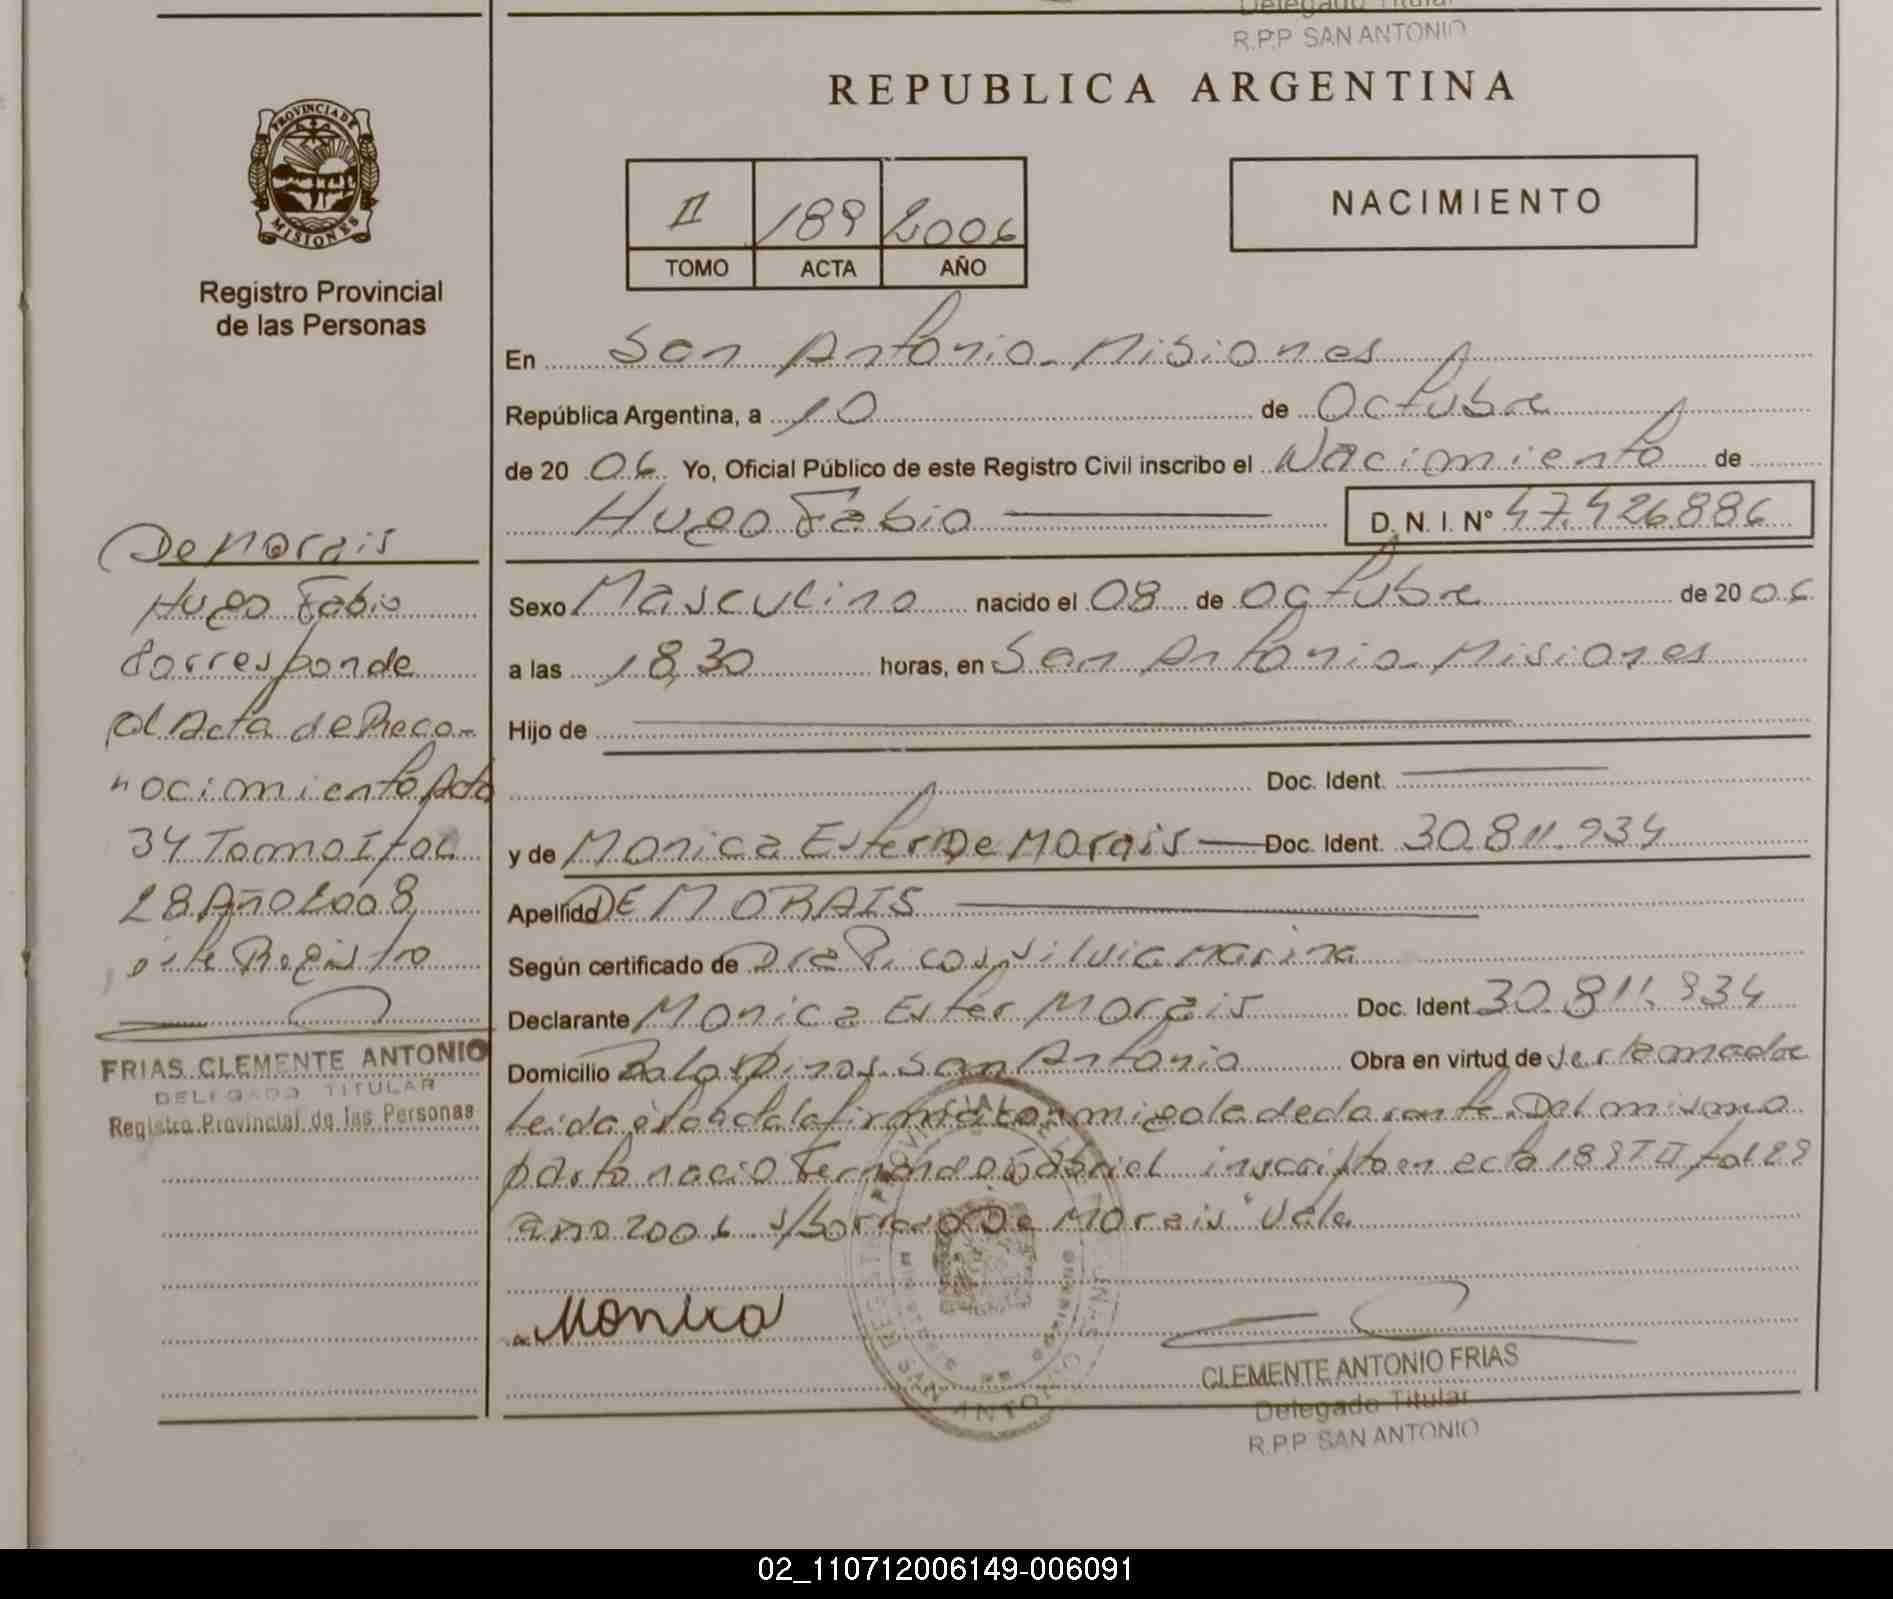 Delegado Titular
R.P.P. SAN ANTONIO
REPUBLICA ARGENTINA
PROVINCIA DE
MISIONES
Registro Provincial
de las Personas
II 189 2006
TOMO ACTA AÑO
NACIMIENTO
En San Antonio - Misiones
República Argentina, a 10 de Octubre
de 20 06 Yo, Oficial Público de este Registro Civil inscribo el Nacimiento de
Hugo Fabio D. N. I. N° 47.426.886
Sexo Masculino nacido el 08 de Octubre de 20 06
a las 18,30 horas, en San Antonio - Misiones
Hijo de
Doc. Ident.
y de Monica Ester De Morais Doc. Ident. 30.811.934
Apellido DE MORAIS
Según certificado de Dra Silvia Marina
Declarante Monica Ester Morais Doc. Ident. 30.811.934
Domicilio San Antonio Obra en virtud de ser la madre
leida esta acta la firma conmigo la declarante. Del mismo
parto nacio Fernando Gabriel inscripto en acta
año 2006 De Morais Vale
Monica
CLEMENTE ANTONIO FRIAS
Delegado Titular
R.P.P. SAN ANTONIO
De Morais
Hugo Fabio
Corresponde
al Acta de Reco-
nocimiento Acta
34 Tomo I fol
28 Año 2008
Registro
FRIAS CLEMENTE ANTONIO
DELEGADO TITULAR
Registro Provincial de las Personas
SAN ANTONIO
02_110712006149-006091